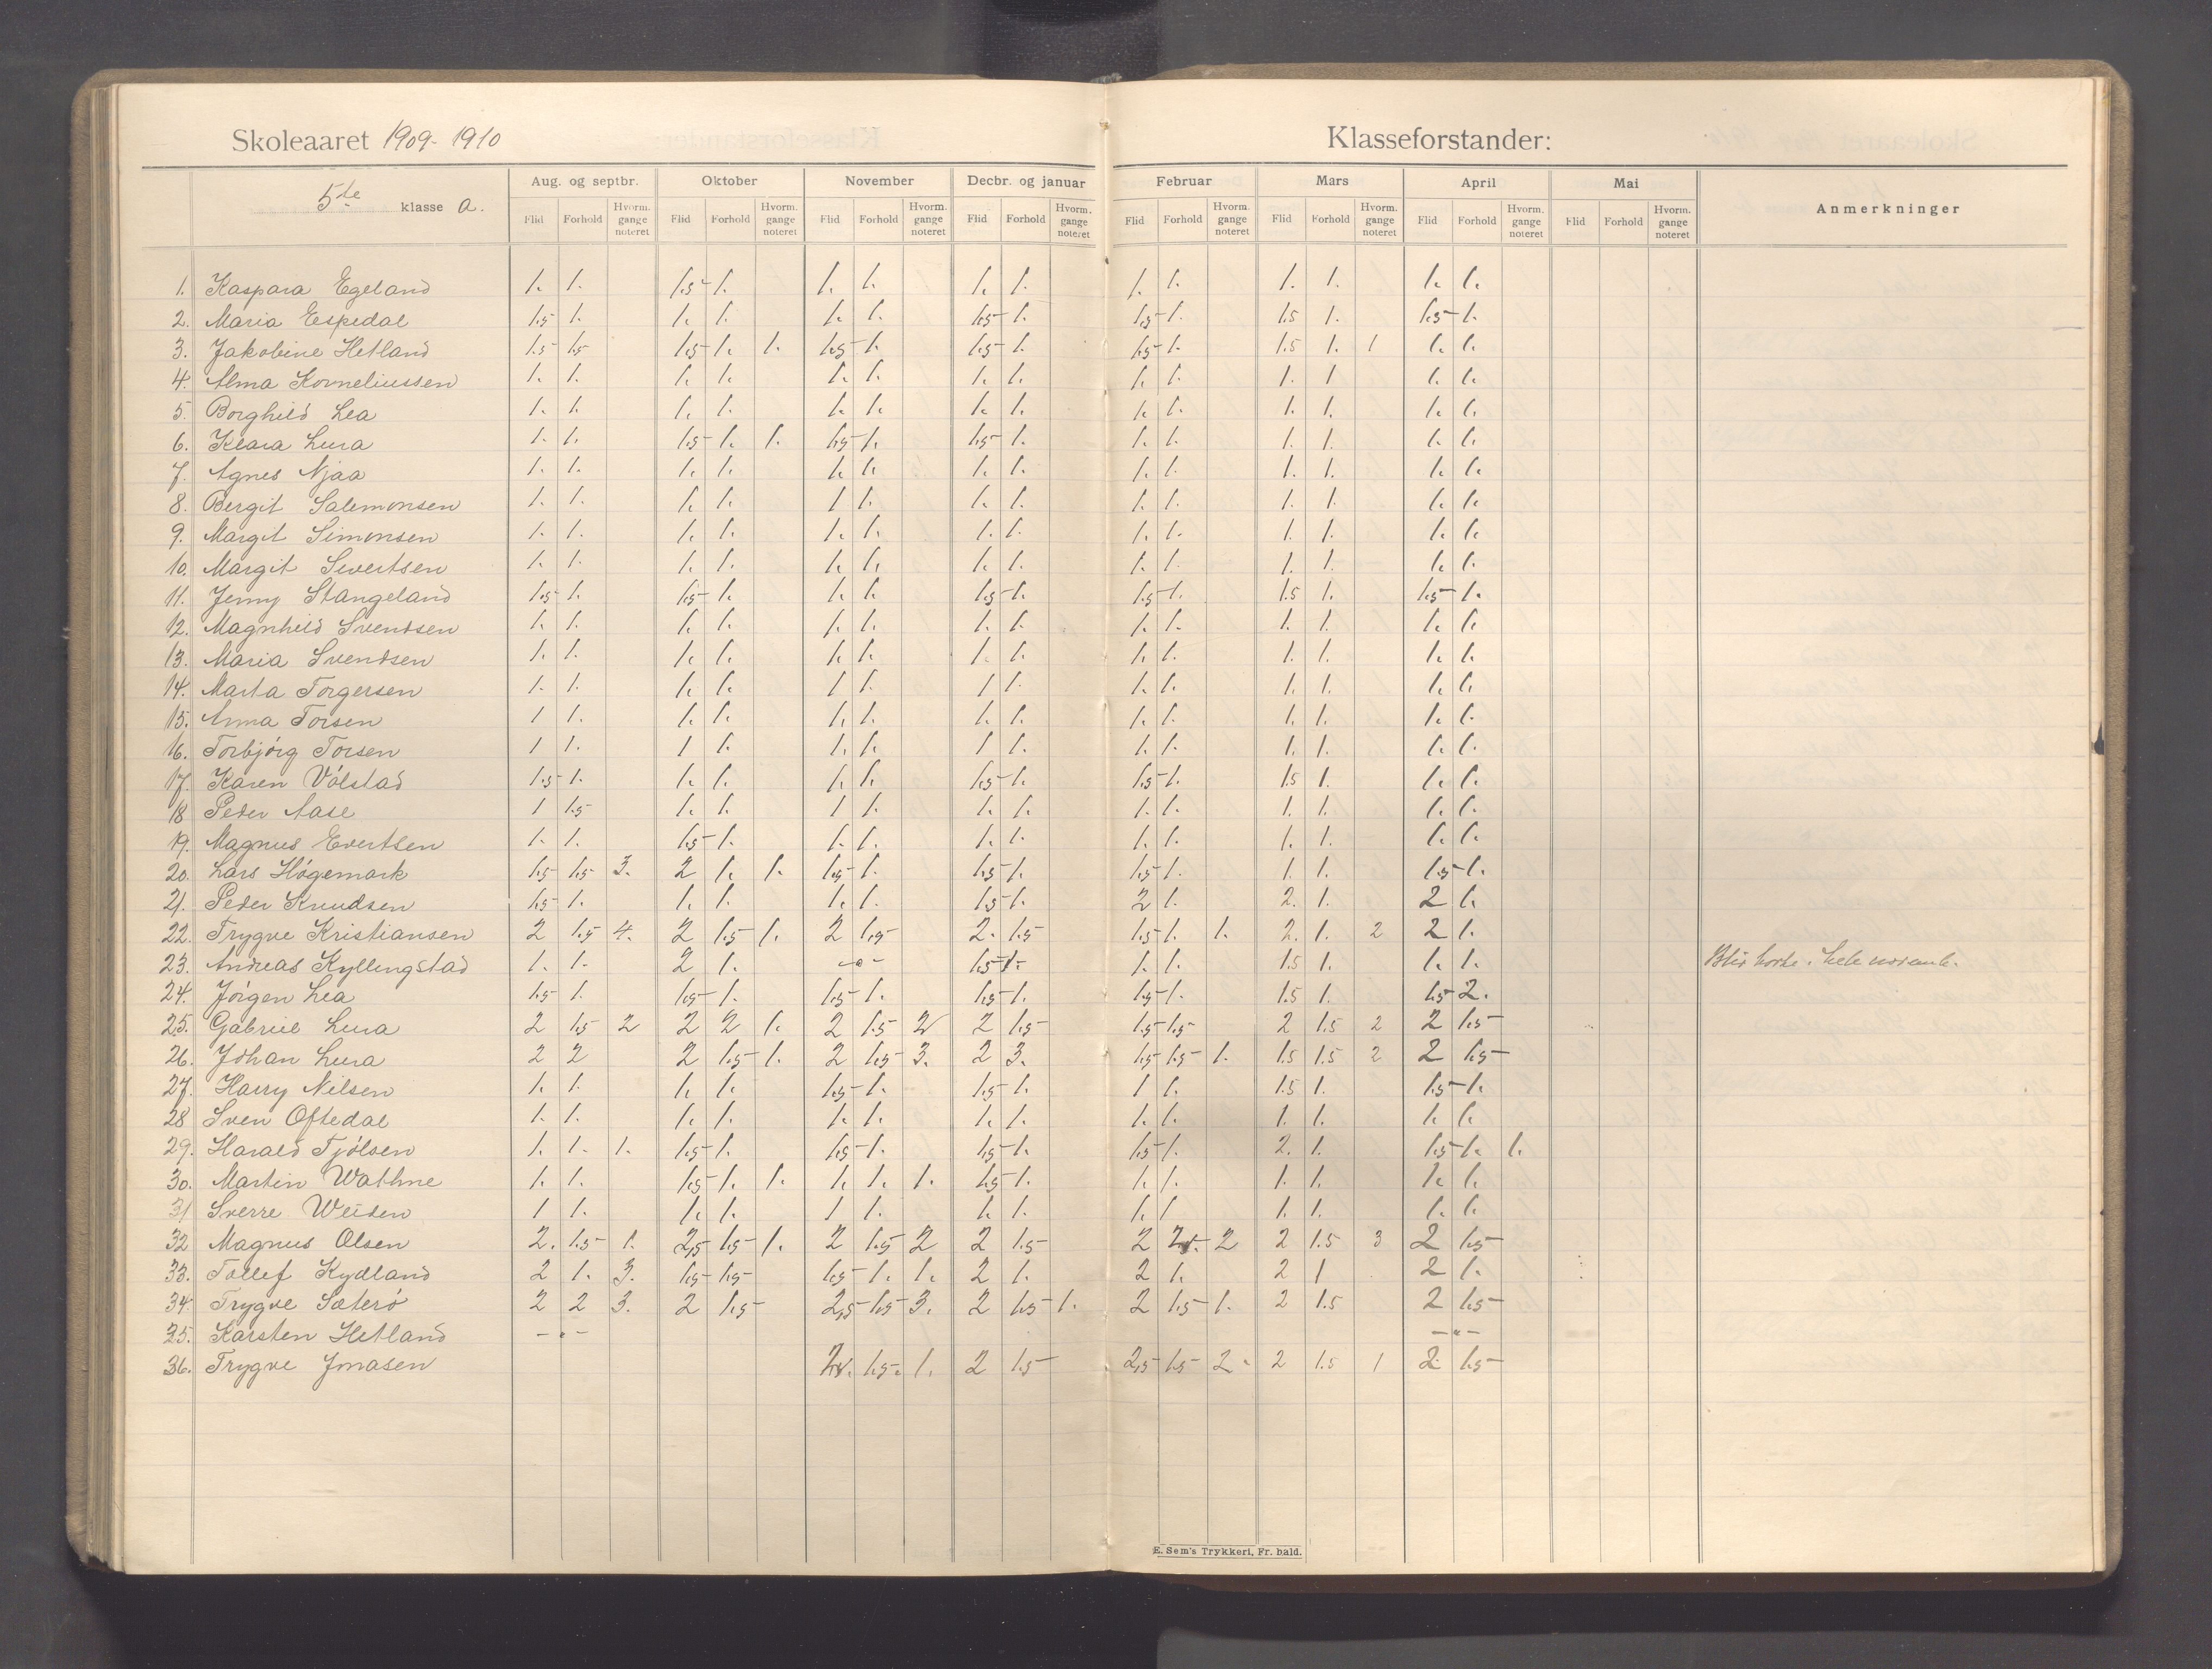 Skoleaaret 1909-1910 Klasseforstander:
5te klasse a. Aug. og septbr. Oktober November Decbr. og januar Februar Mars April Mai Anmerkninger
Flid Forhold Hvorm. gange noteret Flid Forhold Hvorm. gange noteret Flid Forhold Hvorm. gange noteret Flid Forhold Hvorm. gange noteret Flid Forhold Hvorm. gange noteret Flid Forhold Hvorm. gange noteret Flid Forhold Hvorm. gange noteret Flid Forhold Hvorm. gange noteret
1. Kaspara Egeland 1. 1. 1.5 1. 1. 1. 1. 1. 1. 1. 1. 1. 1. 1.
2. Maria Espedal 1.5 1. 1. 1. 1. 1. 1.5 1. 1.5 1. 1.5 1. 1.5 1.
3. Jakobine Hetland 1.5 1.5 1.5 1. 1. 1.5 1. 1.5 1. 1.5 1. 1.5 1. 1 1. 1.
4. Alma Korneliussen 1. 1. 1. 1. 1. 1. 1. 1. 1. 1. 1. 1 1. 1.
5. Borghild Lea 1. 1. 1. 1. 1. 1. 1. 1. 1. 1. 1. 1. 1. 1.
6. Klara Lura 1. 1. 1.5 1. 1. 1.5 1. 1.5 1. 1. 1. 1. 1. 1. 1.
7. Agnes Njaa 1. 1. 1. 1. 1. 1. 1. 1. 1. 1. 1. 1. 1. 1.
8. Bergit Salemonsen 1. 1. 1. 1. 1 1. 1. 1. 1. 1. 1. 1. 1. 1.
9. Margit Simonsen 1. 1. 1. 1. 1. 1. 1. 1. 1. 1. 1. 1. 1. 1.
10. Margit Sivertsen 1. 1. 1. 1. 1. 1. 1. 1. 1. 1. 1. 1. 1. 1.
11. Jenny Stangeland 1.5 1. 1.5 1. 1. 1. 1.5 1. 1.5 1. 1.5 1. 1.5 1.
12. Magnhild Svendsen 1. 1. 1. 1. 1. 1. 1. 1. 1. 1. 1. 1. 1. 1.
13. Maria Svendsen 1. 1. 1. 1. 1. 1. 1. 1. 1. 1. 1. 1. 1. 1.
14. Marta Torgersen 1. 1. 1. 1. 1 1. 1 1. 1. 1. 1. 1. 1. 1.
15. Anna Torsen 1 1. 1. 1. 1. 1. 1. 1. 1. 1. 1. 1. 1. 1.
16. Torbjórg Torsen 1 1. 1 1. 1. 1. 1 1. 1. 1. 1. 1. 1. 1.
17. Karen Vólstad 1.5 1. 1. 1. 1. 1. 1.5 1. 1.5 1. 1.5 1. 1. 1.
18 Peder Aase 1 1.5 1. 1. 1 1. 1. 1. 1. 1. 1. 1. 1. 1.
19. Magnus Evertsen 1. 1. 1.5 1. 1. 1. 1. 1. 1. 1. 1. 1. 1. 1.
20. Lars Hógemark 1.5 1.5 3. 2 1. 1. 1.5 1. 1.5 1. 1.5 1. 1. 1. 1.5 1.
21. Peder Knudsen 1.5 1. 1. 1. 1. 1. 1.5 1. 2 1. 2. 1. 2 1.
22. Trygve Kristiansen 2 1.5 4. 2 1.5 1. 2 1.5 2. 1.5 1.5 1. 1. 2. 1. 2 2 1.
23. Andreas Kyllingstad 1. 1. 2 1. -o- 1.5 1. 1. 1. 1.5 1. 1. 1. hele
24. Jórgen Lea 1.5 1. 1.5 1. 1.5 1. 1.5 1. 1.5 1. 1.5 1. 1.5 2.
25. Gabriel Lura 2 1.5 2 2 2 1. 2 1.5 2 2 1.5 1.5 1.5 2 1.5 2 2 1.5
26. Johan Lura 2 2 2 1.5 1. 2 1.5 3. 2 3. 1.5 1.5 1. 1.5 1.5 2 2 1.5
27. Harry Nilsen 1. 1. 1. 1. 1.5 1. 1.5 1. 1 1. 1.5 1. 1.5 1.
28 Sven Oftedal 1. 1. 1. 1. 1. 1. 1. 1. 1. 1. 1. 1. 1. 1.
29. Harald Tjólsen 1. 1. 1. 1.5 1. 1.5 1. 1.5 1. 1.5 1. 2. 1. 1.5 1. 1.
30. Martin Wathne 1. 1. 1.5 1. 1. 1. 1. 1. 1.5 1. 1. 1. 1. 1. 1. 1.
31 Sverre Weiden 1 1. 1. 1. 1 1. 1. 1. 1. 1 1. 1. 1. 1.
32 Magnus Olsen 2. 1.5 1. 2,5 1.5 1. 2 1.5 2 2 1.5 2 2 2 1.5 3 2 1.5
33. Tollef Kydland 2 1. 3. 1.5 1.5 1.5 1. 1. 2 1. 2 1. 2 1 2 1.
34. Trygve Sæteró 2 2 3. 2 1.5 2,5 1.5 3. 2 1.5 1. 2 1.5 1. 2 1.5 2 1.5
35. Karsten Hetland -"- -"-
36. Trygve Jonasen 1.5 1. 2 1.5 2,5 1.5 2. 2 1.5 1 2 1.5
E. Sem's Trykkeri, Fr. hald.